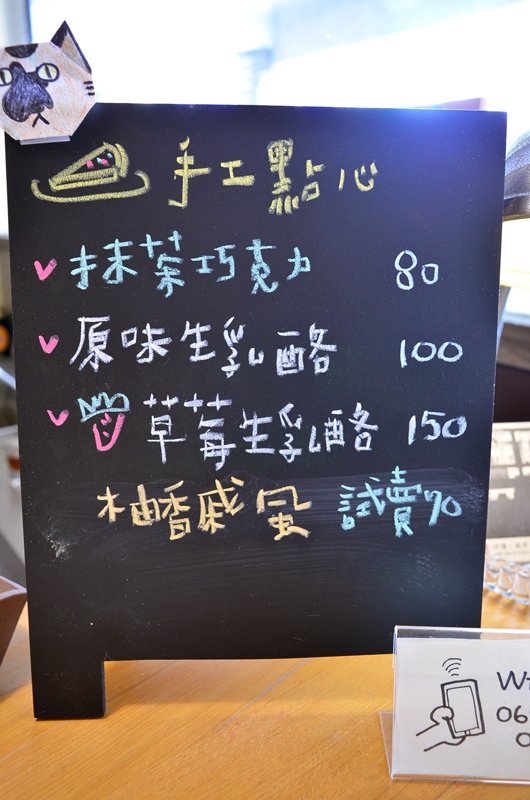 手工點心
抹茶巧克力 80
原味生乳酪 100
草莓生乳酪 150
柚香戚風 試賣70